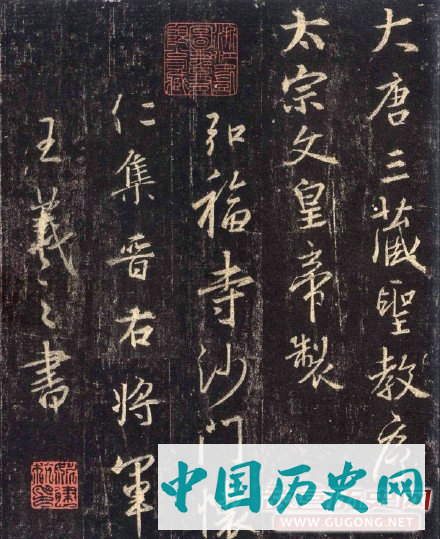 大唐三藏聖教序
太宗文皇帝製
弘福寺沙門懷
仁集晋右将軍
王羲之書
中国历史网
WWW.GUGONG.NET